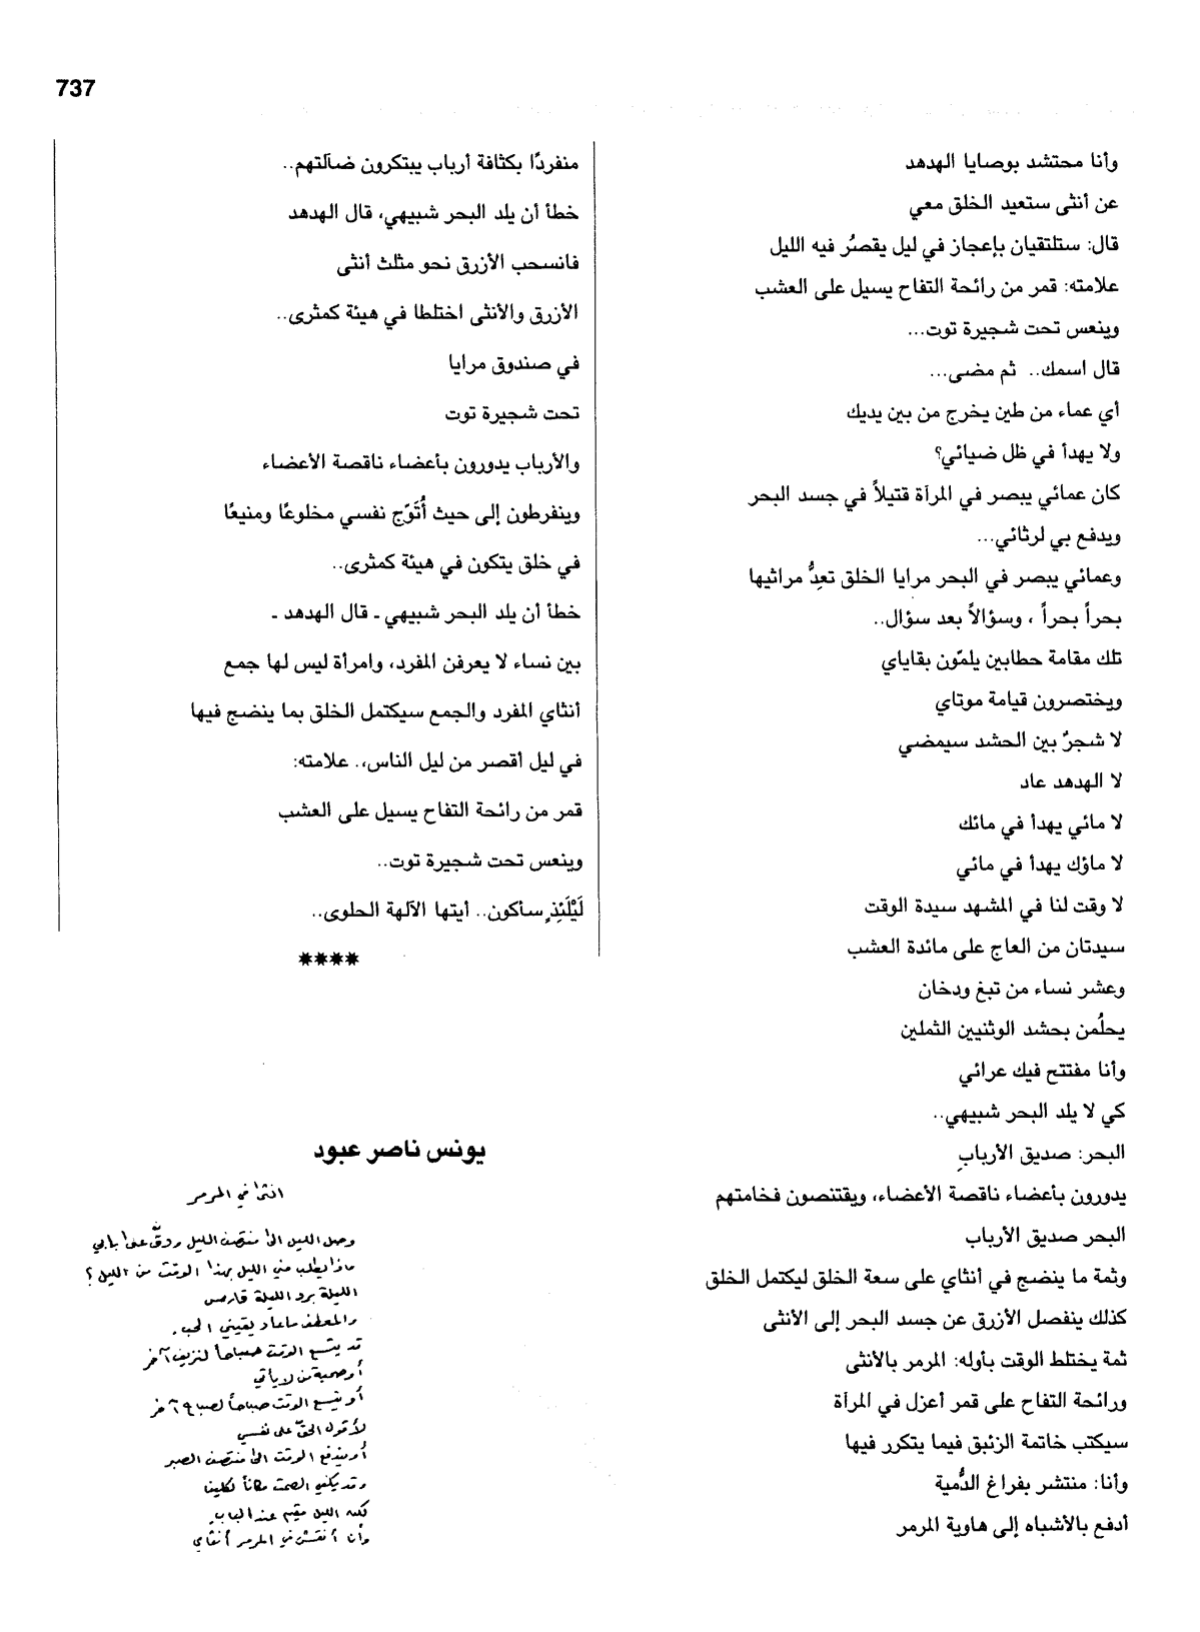 737
وأنا محتشد بوصايا الهدهد
عن أنثى ستعيد الخلق معي
قال: ستلتقيان بإعجاز في ليل يقصُر فيه الليل
علامته: قمر من رائحة التفاح يسيل على العشب
وينعس تحت شجيرة توت...
قال اسمك.. ثم مضى...
أي عماء من طين يخرج من بين يديك
ولا يهدأ في ظل ضيائي؟
كان عمائي يبصر في المرآة قتيلاً في جسد البحر
ويدفع بي لرثائي...
وعمائي يبصر في البحر مرايا الخلق تعِدُّ مراثيها
بحراً بحراً ، وسؤالاً بعد سؤال..
تلك مقامة حطابين يلمّون بقاياي
ويختصرون قيامة موتاي
لا شجرٌ بين الحشد سيمضي
لا الهدهد عاد
لا مائي يهدأ في مائك
لا ماؤك يهدأ في مائي
لا وقت لنا في المشهد سيدة الوقت
سيدتان من العاج على مائدة العشب
وعشر نساء من تبغ ودخان
يحلُمن بحشد الوثنيين الثملين
وأنا مفتتح فيك عرائي
كي لا يلد البحر شبيهي..
البحر: صديق الأربابِ
يدورون بأعضاء ناقصة الأعضاء، ويقتنصون فخامتهم
البحر صديق الأرباب
وثمة ما ينضج في أنثاي على سعة الخلق ليكتمل الخلق
كذلك ينفصل الأزرق عن جسد البحر إلى الأنثى
ثمة يختلط الوقت بأوله: المرمر بالأنثى
ورائحة التفاح على قمر أعزل في المرآة
سيكتب خاتمة الزئبق فيما يتكرر فيها
وأنا: منتشر بفراغ الدُّمية
أدفع بالأشباه إلى هاوية المرمر
منفردًا بكثافة أرباب يبتكرون ضآلتهم..
خطأ أن يلد البحر شبيهي، قال الهدهد
فانسحب الأزرق نحو مثلث أنثى
الأزرق والأنثى اختلطا في هيئة كمثرى..
في صندوق مرايا
تحت شجيرة توت
والأرباب يدورون بأعضاء ناقصة الأعضاء
وينفرطون إلى حيث أُتَوّج نفسي مخلوعًا ومنيعًا
في خلق يتكون في هيئة كمثرى..
خطأ أن يلد البحر شبيهي ـ قال الهدهد ـ
بين نساء لا يعرفن المفرد، وامرأة ليس لها جمع
أنثاي المفرد والجمع سيكتمل الخلق بما ينضج فيها
في ليل أقصر من ليل الناس،. علامته:
قمر من رائحة التفاح يسيل على العشب
وينعس تحت شجيرة توت..
لَيْلَئِذٍ سأكون.. أيتها الآلهة الحلوى..
****
يونس ناصر عبود
في المرمر
وصل الليل الى منتصف الليل ودقَّ على بابي
ماذا يطلب مني الليل بهذا الوقت من الليل ؟
الليلة برد الليلة قارص
والمعطف ما عاد يقيني الحب .
قد يتسع الوقت صباحاً لنزيف آخر
أو صحبة من لا يأتي
أو يتسع الوقت صباحاً لصباح آخر
لأقول الحقّ على نفسي
أو يندفع الوقت الى منتصف الصبر
وقد يكفي الصمت مكاناً لكلينا
لكن الليل مقيم عند الباب
وأن أنقش في المرمر أنثاي